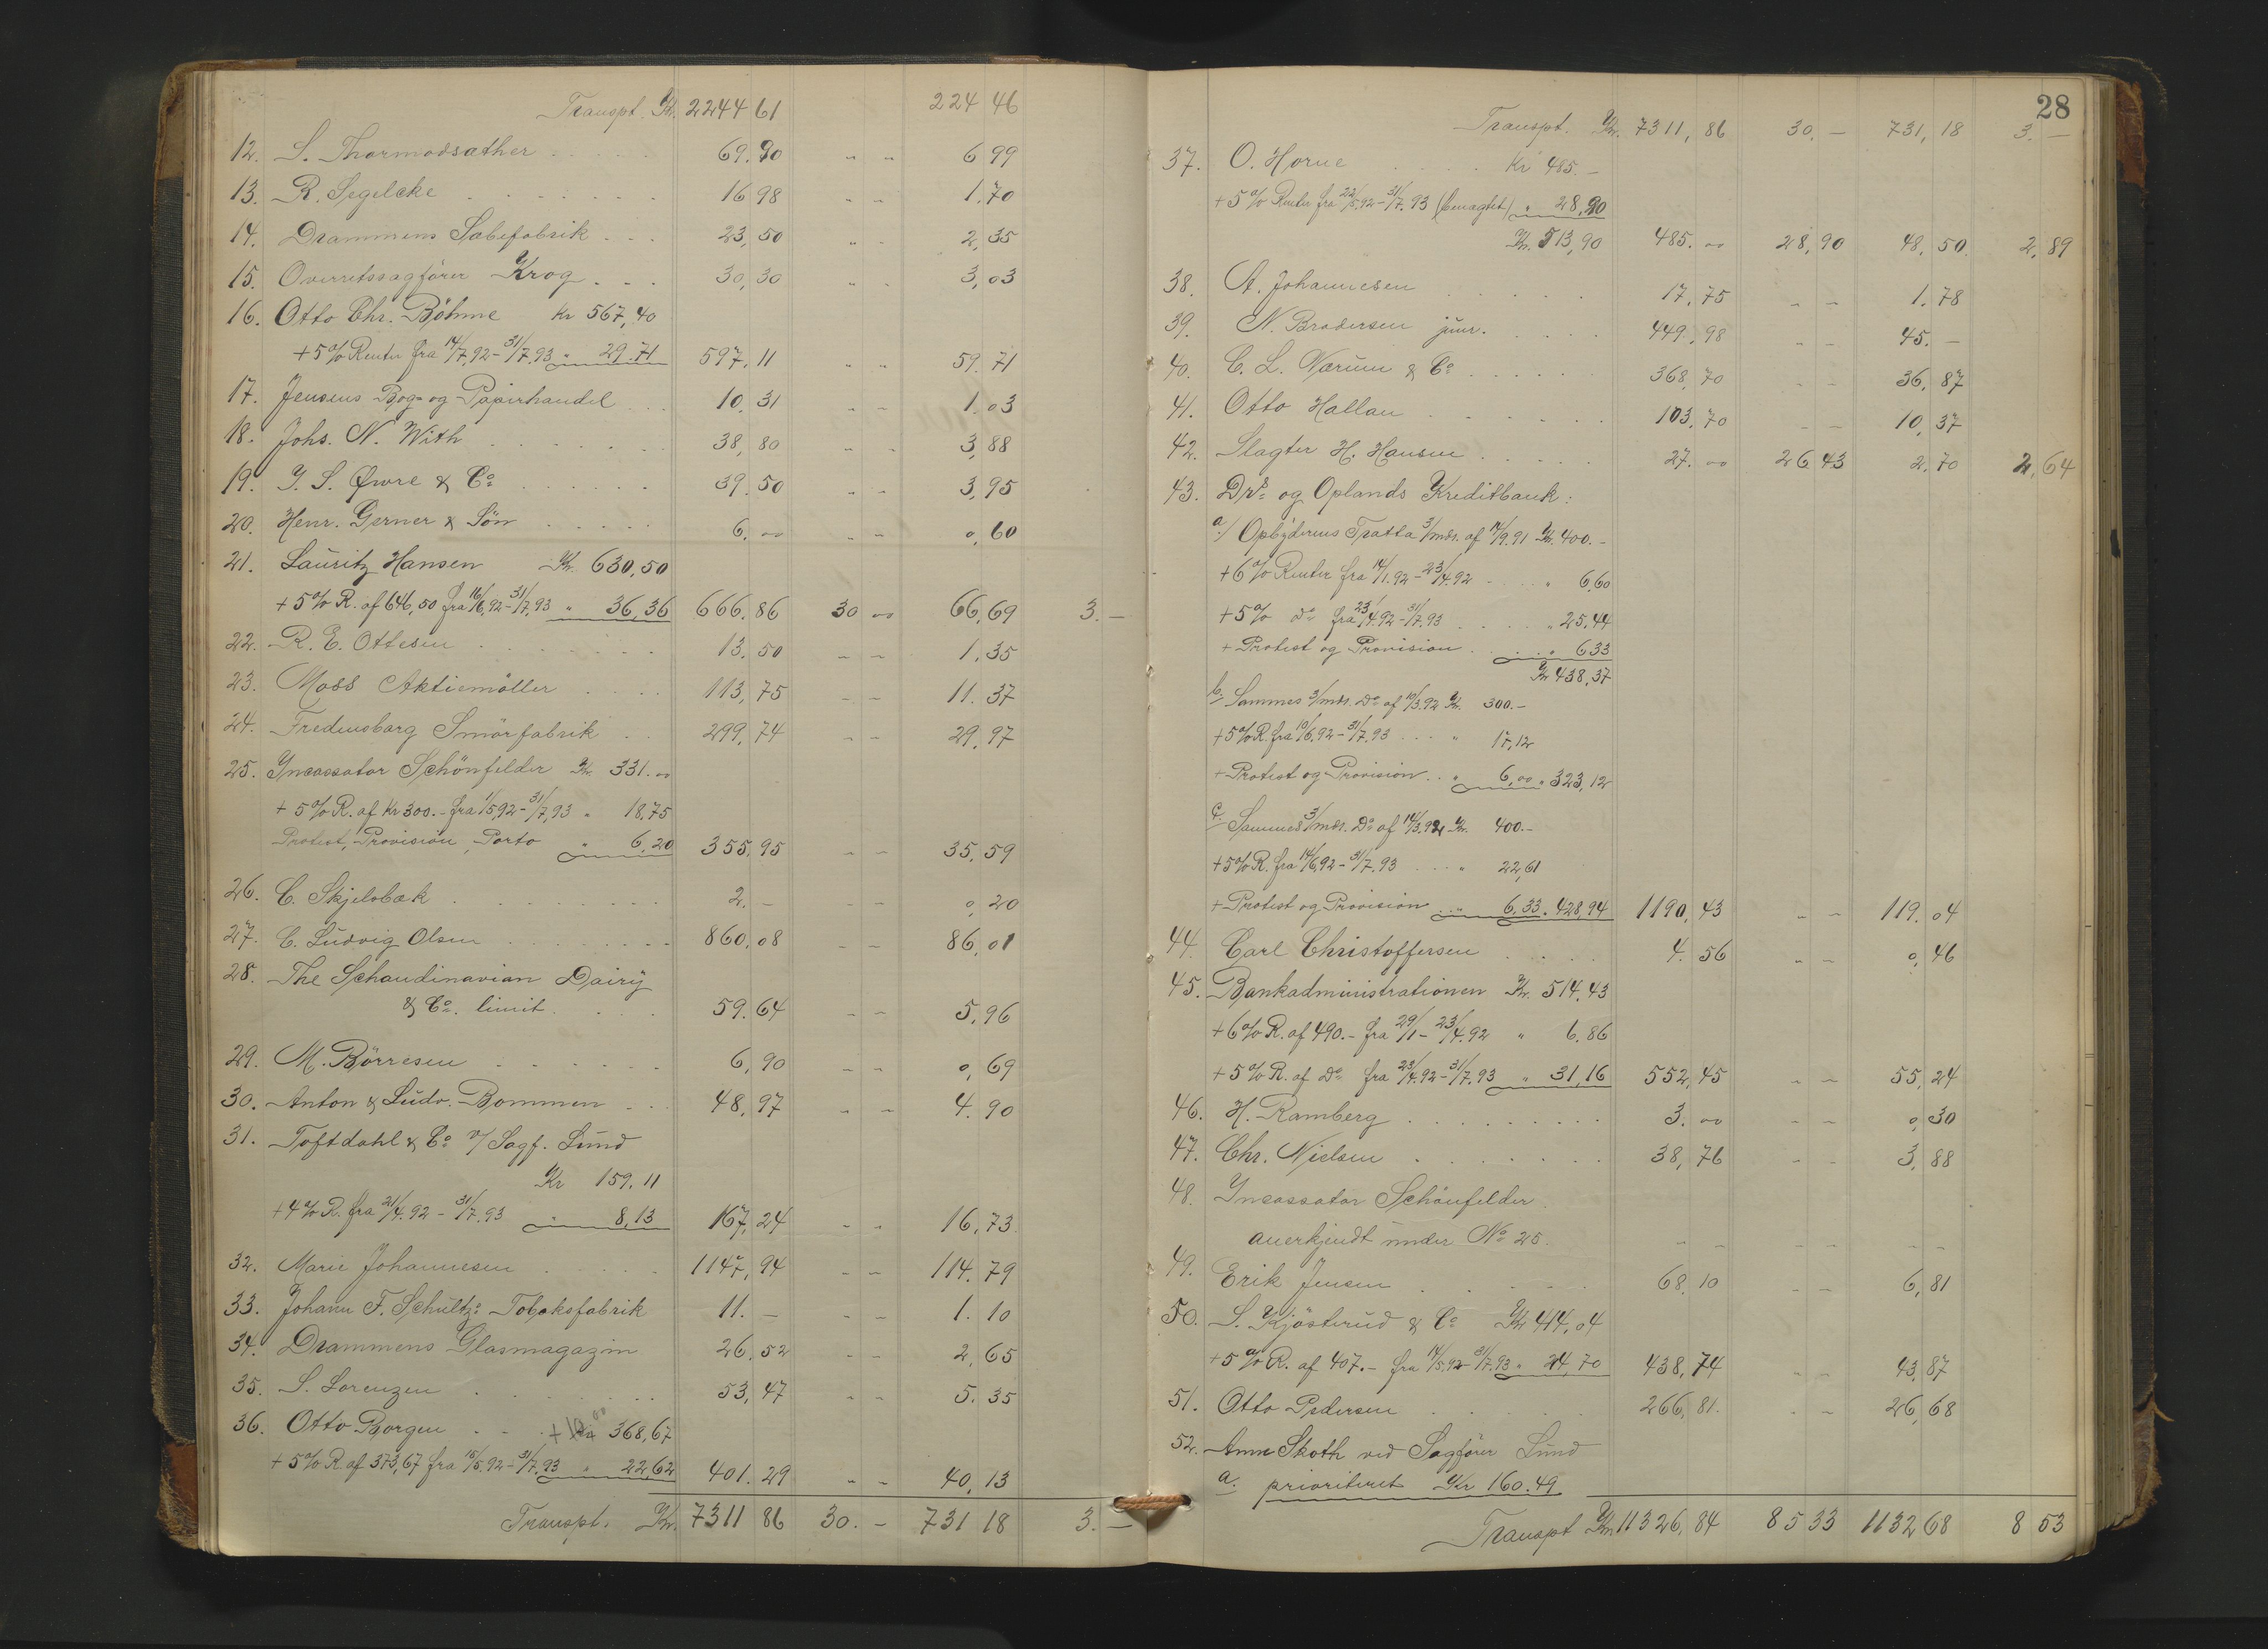 Transpt. Kr. 2244 61 224 46
12. S. Thormodsæther . . . . 69.90 " " 6 99
13. R. Segelcke . . . . . . 16 98 " " 1.70
14. Drammens Sæbefabrik . . . 23,50 " " 2,35
15. Overretssagfører Krog . . . 30,30 " " 3,03
16. Otto Chr. Böhme Kr 567,40
+ 5% Renter fra 14/7.92 - 31/7.93 " 29.71 597,11 " " 59.71
17. Jensens Bog- og Papirhandel . . 10.31 " " 1.03
18. Johs. N. With . . . . . . 38,80 " " 3,88
19. J. S. Øwre & Co . . . . . . 39.50 " " 3,95
20. Henr. Gerner & Søn . . . . . 6.00 " " 0,60
21. Lauritz Hansen Kr. 630,50
+ 5% R. af 646,50 fra 16/6.92 - 31/7.93 " 36,36 666.86 30 00 66,69 3.-
22. R. E. Ottesen . . . . . . . 13.50 " " 1,35
23. Moss Aktiemöller . . . . 113,75 " " 11.37
24. Fredensborg Smörfabrik . . 299,74 " " 29,97
25. Incassator Schönfelder Kr. 331.00
+ 5% R. af Kr 300.- fra 1/5.92 - 31/7.93 " 18,75
Protest, Provision, Porto " 6,20 355,95 " " 35,59
26. C. Skjelobæk . . . . . . . . 2.- " " 0,20
27. C. Ludvig Olsen . . . . . . . 860,08 " " 86,01
28. The Schandinavian Dairy
& Co. limit . . . . 59.64 " " 5,96
29. M. Börresen . . . . . . . 6,90 " " 0,69
30. Anton & Ludv. Bommen . . . 48,97 " " 4.90
31. Toftdahl & Co v/ Sagf. Lund
Kr 159.11
+ 4% R. fra 21/4.92 - 31/7.93 " 8,13 167,24 " " 16,73
32. Marie Johannesen . . . . . 1147,94 " " 114.79
33. Johann F. Schultz: Tobaksfabrik 11.- " " 1.10
34. Drammens Glasmagazin 26,52 " " 2,65
35. S. Lorenzen . . . . . . . 53,47 " " 5.35
36. Otto Borgen . . . + 10 00 368,67
+ 5% R. af 373,67 fra 15/5.92 - 31/7.93 " 22,62 401.29 " " 40,13
Transpt. Kr. 7311 86 30.- 731 18 3.-
28
Transpt. Kr. 7311,86 30.- 731,18 3.-
37. O. Horne . . . . Kr 485.-
+ 5% Renter fra 22/5.92 - 31/7.93 (benægtet) " 28,90
Kr. 513,90 485.00 28,90 48,50 2,89
38. A. Johannesen . . . . . 17,75 " " 1.78
39. N. Brodersen junr. . . . . 449,98 " " 45.-
40. C. L. Nærum & Co . . . . . . 368,70 " " 36,87
41. Otto Hallan . . . . . . 103,70 " " 10,37
42. Slagter H. Hansen . . . . . 27.00 26 43 2,70 2,64
43. Drs. og Oplands Kreditbank:
a/ Opbyderens Tratta 3/mdr. af 14/9.91 Kr. 400.-
+ 6% Renter fra 14/1.92 - 23/4.92 . . . " 6,60
+ 5% do fra 23/4.92 - 31/7.93 . . . . . " 25,44
+ Protest og Provision . . . . " 6 33
Kr 438,37
b/ Sammes 3/mdr. Do af 10/3.92 Kr. 300.-
+ 5% R. fra 10/6.92 - 31/7.93 . . . " 17,12
+ Protest og Provision . . " 6,00 " 323,12
c/ Sammes 3/mdr. Do af 14/3.92 Kr. 400.-
+ 5% R. fra 14/6.92 - 31/7.93 . . . " 22,61
+ Protest og Provision . . " 6,33 " 428,94 1190,43 " " 119.04
44. Carl Christoffersen . . . . 4.56 " " 0,46
45. Bankadministrationen Kr. 514.43
+ 6% R. af 490.- fra 29/1 - 23/4.92 " 6.86
+ 5% R. af do fra 23/4.92 - 31/7.93 " 31,16 552,45 " " 55,24
46. H. Ramberg . . . . . . . . . 3.00 " " 0,30
47. Chr. Nielsen . . . . . . . 38,76 " " 3,88
48. Incassator Schönfelder
anerkjendt under No 25. " " " " " "
49. Erik Jensen . . . . . 68,10 " " 6,81
50. S. Kjösterud & Co Kr 414,04
+ 5% R. af 407.- fra 14/5.92 - 31/7.93 " 24,70 438,74 " " 43,87
51. Otto Pedersen . . . . . 266,81. " " 26,68
52. Anne Skoth ved Sagfører Lund
a. prioriteret Kr 160.49
Transpt Kr. 11326,84 85 33 1132 68 8 53